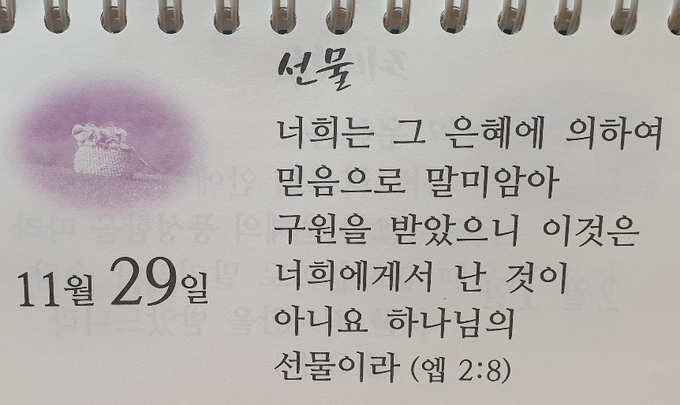 선물
너희는 그 은혜에 의하여
믿음으로 말미암아
구원을 받았으니 이것은
너희에게서 난 것이
아니요 하나님의
선물이라 (엡 2:8)
11월 29일